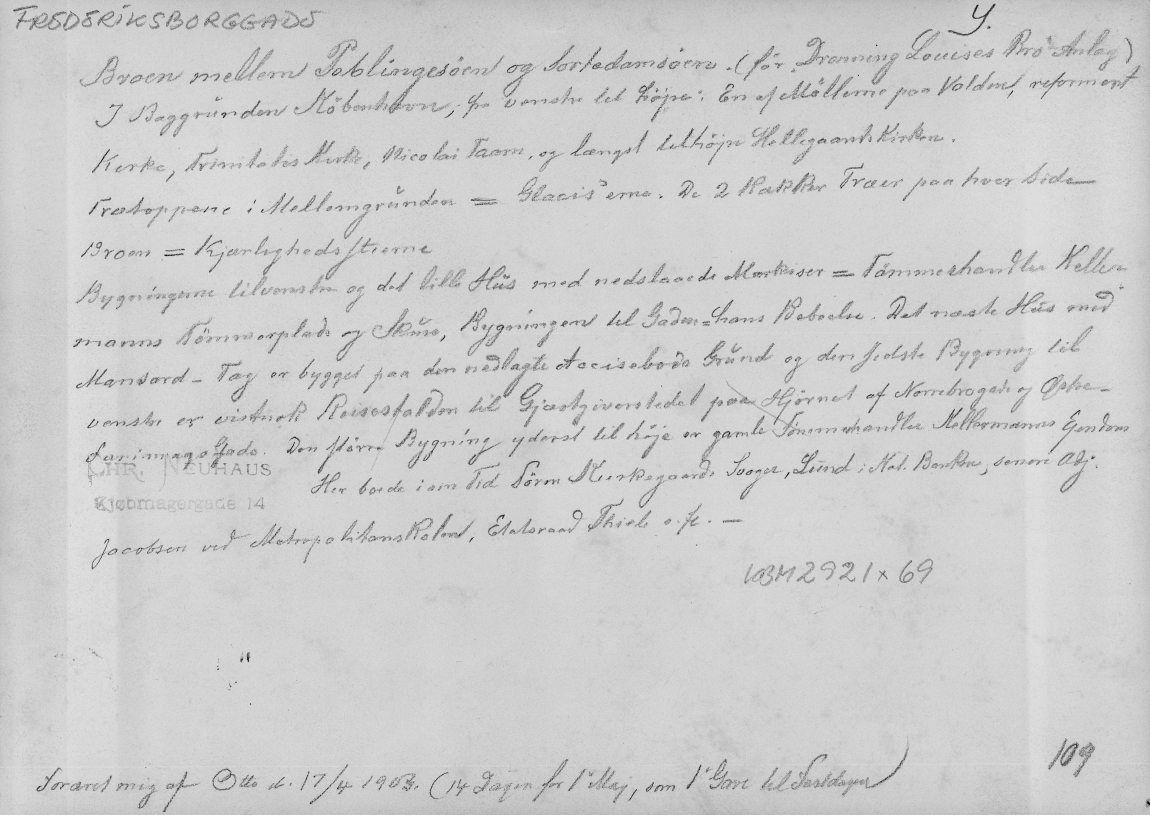 FREDERIKSBORGGADE
Y.
Broen mellem Peblingesöen og Sortedamsöen. (för Dronning Louises Bro Anlæg)
I Baggrunden Köbenhavn, fra venstre til höjre: En af Möllerne paa Volden, reformert
Kirke, Trinitatis Kirke, Nicolai Taarn, og længst til höjre Helligaands Kirken.
Trætoppene i Mellemgrunden = Glacis'erne. De 2 Rækker Træer paa hver Side
Broen = Kjærlighedsstierne
Bygningerne tilvenstre og det lille Hus med nedslaaede Markiser = Tömmerhandler Keller-
manns Tömmerplads og Skure, Bygningen til Gaden = hans Beboelse. Det næste Hus med
Mansard-Tag er bygget paa den nedlagte Accisebods Grund og den sidste Bygning til
venstre er vistnok til Gjæstgiverstedet paa Hjörnet af Nörrebrogade og Östre-
Farimags Gade. Den större Bygning yderst til höjre er gamle Tömmerhandler Kellermanns Ejendom
CHR. NEUHAUS
Kjöbmagergade 14
Her boede i sin Tid Sören Kierkegaards Svoger, Lund i Nat. Banken, senere Adj.
Jacobsen ved Metropolitanskolen, Etatsraad Thiele o. fl. —
KBM 2921 x 69
109
Foræret mig af Otto d. 17/4 1903. (14 Dagen for 1' Maj, som 1' Gave til Festdagen)